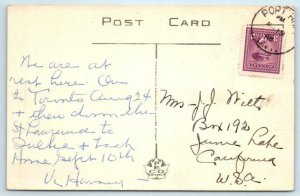 POST CARD
PORT HO
We are at
rest here. On
to Toronto Aug 24
& then down the
St Lawrence to
Quebec & back
Home Sept 10th
V. Harvey
CANADA
Mrs J. J. Wilts
Box 192
June Lake
California
U.S.A